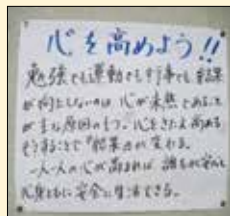 心を高めよう!!
勉強でも運動でも行事でも 結果
が何としないのは 心が未熟であること
が主な原因の1つ。心をきたえ高める
そうすることで 結果は変わる。
一人一人の心が高まれば 誰もが安心して
心身ともに安全に生活できる。